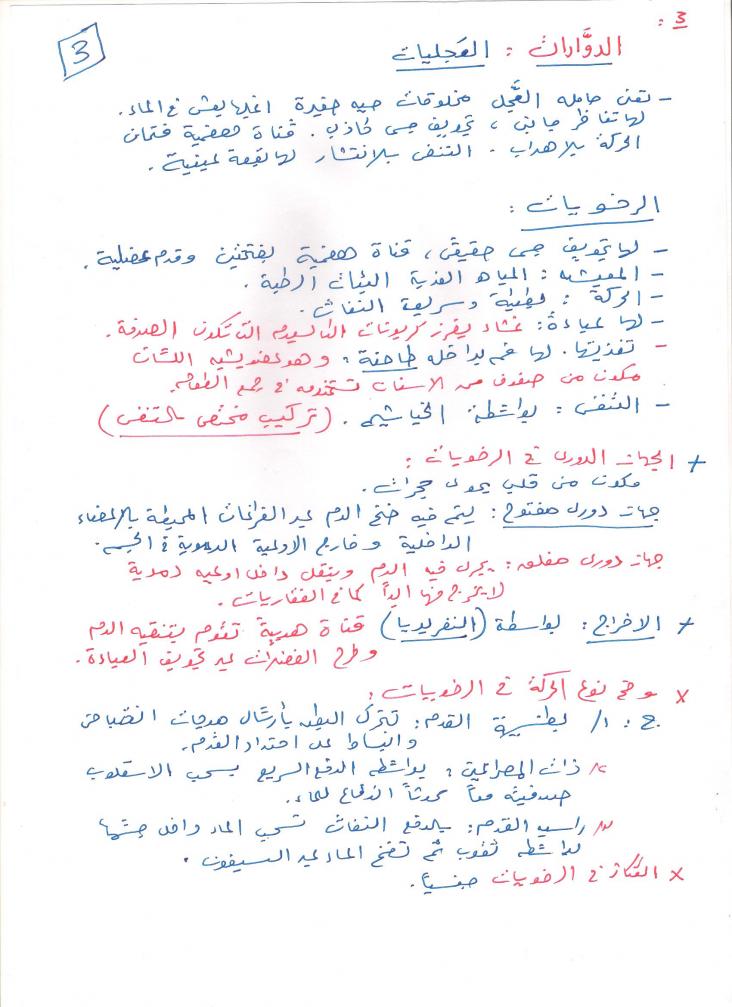 3 :
3
الدوَّارات : العجليات
- تعنى حامله العَجل مخلوقات حيه صغيرة اغلبها يعش في الماء.
لها تناظر جانبي ، تجويف جسمي كاذب . قناة هضمية فتحتان
الحركة بالاهداب . التنفس بالانتشار لها بقعة عينية .
الرخويات :
- لها تجويف جسمي حقيقي ، قناة هضمية بفتحتين وقدم عضلية .
- المعيشه : المياه العذبة البيئات الرطبة .
- الحركة : بطيئة وسريعة النفاث .
- لها عباءة : غشاء يفرز كربونات الكالسيوم التي تكون الصدفة .
- تغذيتها . لها فم بداخله طاحنة ، وهو عضو يشبه اللسان
مكون من صفوف من الاسنان تستخدمه في جمع الطعام .
- التنفس : بواسطة الخياشيم . (تركيب مختص بالتنفس)
+ الجهاز الدوري في الرخويات :
مكون من قلب يحوى حجرات .
جهاز دورى مفتوح : يتم فيه ضخ الدم عبر الفراغات المحيطة بالاعضاء
الداخلية وخارج الاوعية الدموية في الجسم .
جهاز دورى مغلق : يجرى فيه الدم وينقل داخل اوعيه دموية
لا يخرج منها ابداً كما في الفقاريات .
+ الاخراج : بواسطة (النفريديا) قناة هدبية تقوم بتنقيه الدم
وطرح الفضلات عبر تجويف العباءة .
× وضح نوع الحركة في الرخويات :
ج : 1/ بطنية القدم : تتحرك ببطء بأرسال موجات انقباض
وانبساط على امتداد القدم .
2/ ذات المصراعين : بواسطه الدفع السريع بسحب
صدفيته معاً محدثاً اندفاع للماء .
3/ راسية القدم : بالدفع النفاث تسحب الماء داخل جسمها
بواسطه ثقوب ثم تضخ الماء عبر السيفون .
× التكاثر في الرخويات جنسياً .